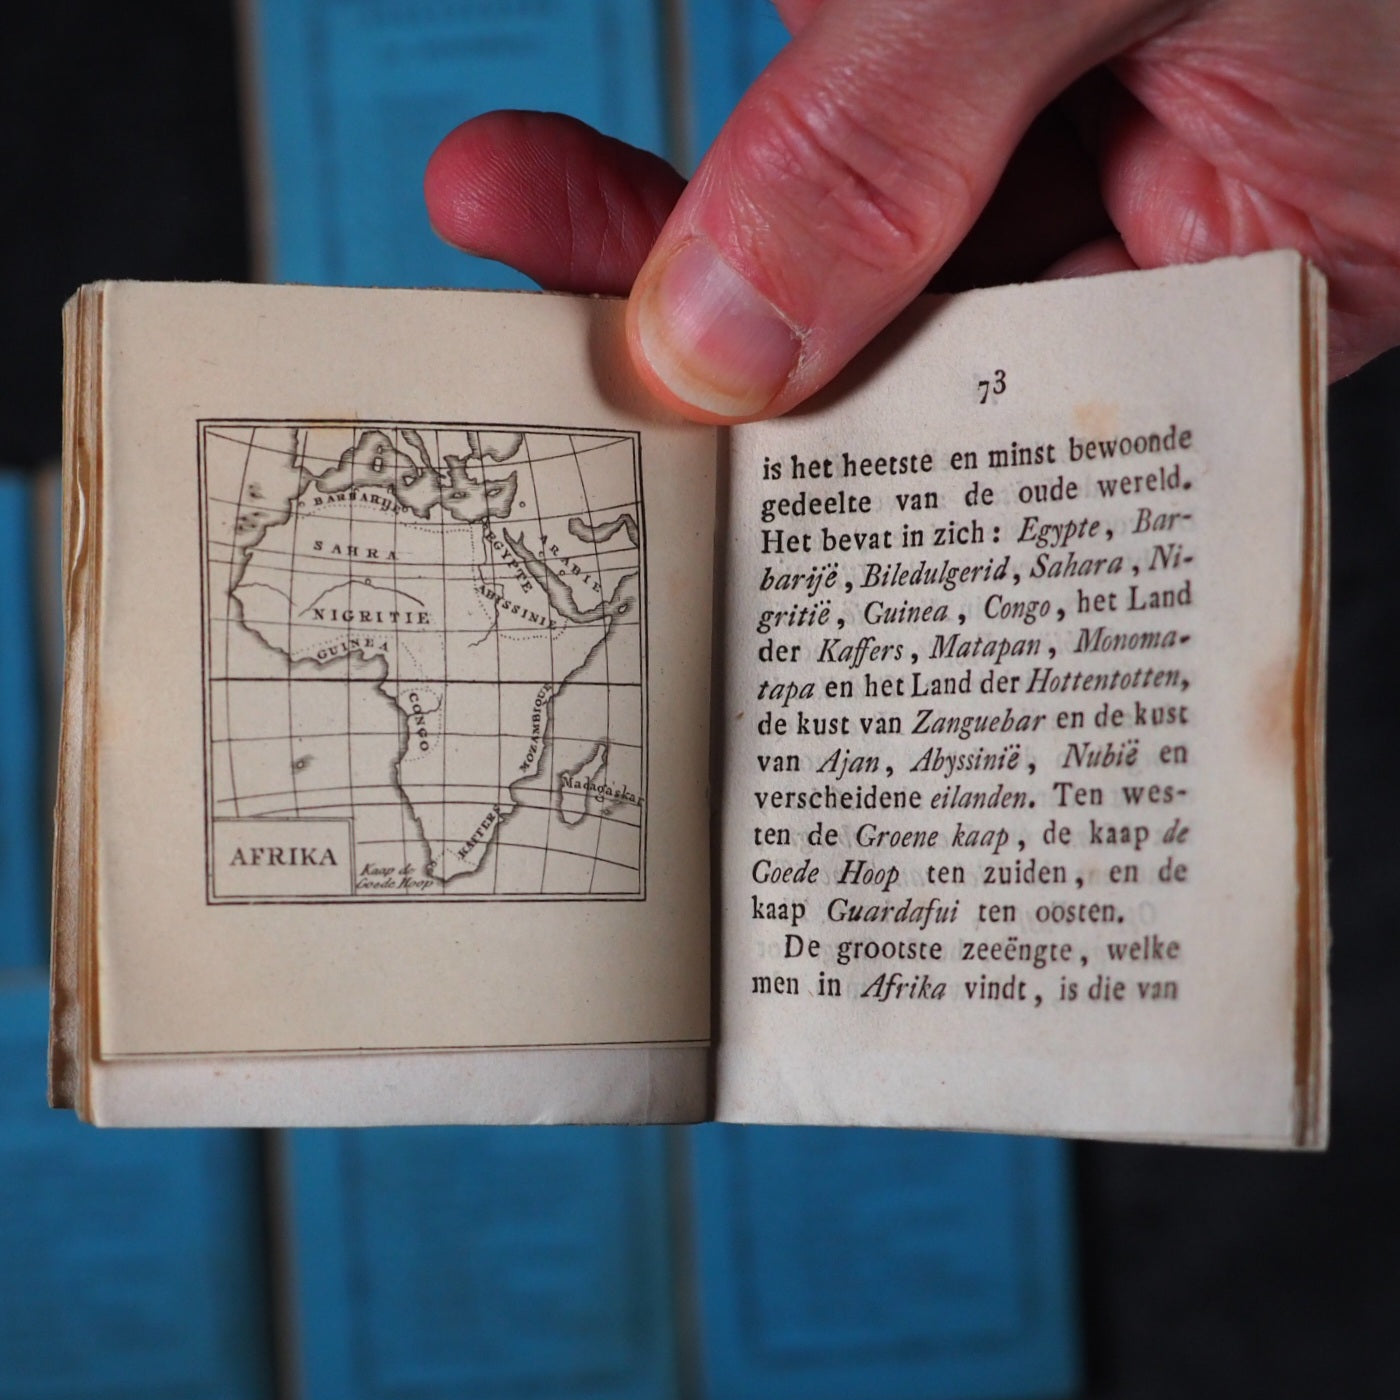 BARBARIJE
SAHRA
EGYPTE
ARABIE
ABISSINIE
NIGRITIE
GUINEA
CONGO
MOZAMBIQUE
Madagaskar
KAFFERS
AFRIKA
Kaap de
Goede Hoop
73
is het heetste en minst bewoonde
gedeelte van de oude wereld.
Het bevat in zich: Egypte, Bar-
barijë, Biledulgerid, Sahara, Ni-
gritië, Guinea, Congo, het Land
der Kaffers, Matapan, Monoma-
tapa en het Land der Hottentotten,
de kust van Zanguebar en de kust
van Ajan, Abyssinië, Nubië en
verscheidene eilanden. Ten wes-
ten de Groene kaap, de kaap de
Goede Hoop ten zuiden, en de
kaap Guardafui ten oosten.
De grootste zeeëngte, welke
men in Afrika vindt, is die van